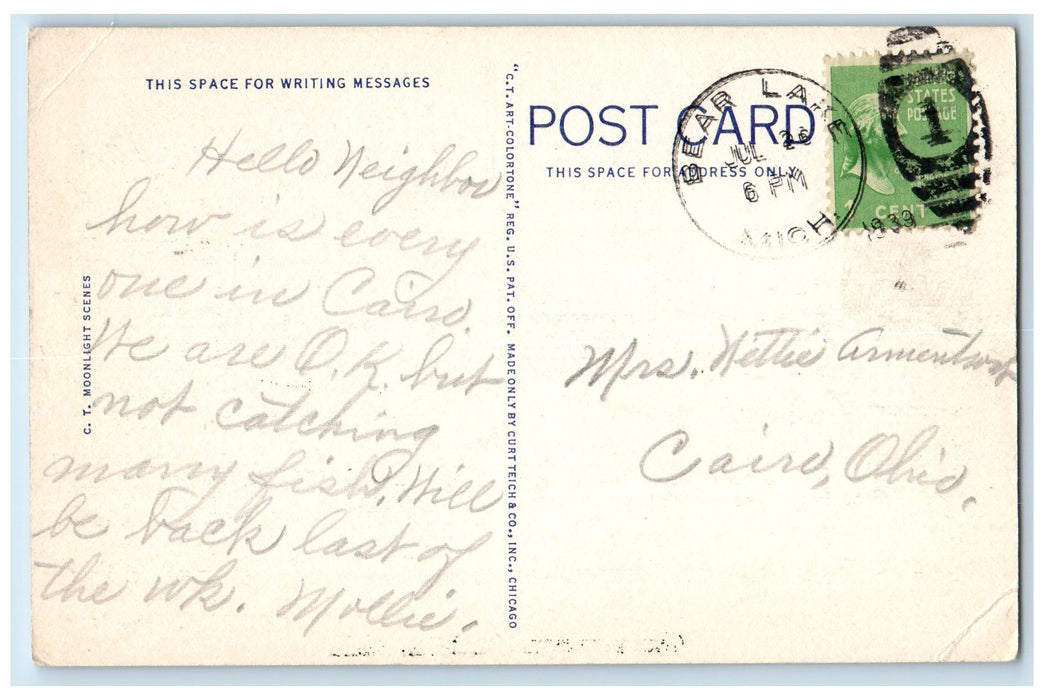 THIS SPACE FOR WRITING MESSAGES
Hello Neighbor
how is every
one in Cairo.
We are O.K. but
not catching
many fish. Will
be back last of
the wk. Mollie.
C. T. MOONLIGHT SCENES
"C.T. ART-COLORTONE" REG. U.S. PAT. OFF. MADE ONLY BY CURT TEICH & CO., INC., CHICAGO
POST CARD
THIS SPACE FOR ADDRESS ONLY
BEAR LAKE
JUL 26
6 PM
MICH.
1939
UNITED
STATES
POSTAGE
1
1 CENT
Mrs. Nettie Armentrout
Cairo, Ohio.